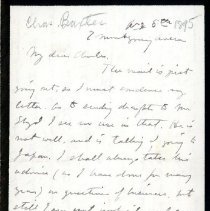 Chas. Baxter
Aug 6th 1895
My dear Charles,
The mail is just
going out, so I must condense my
letter. As to sending to
I see no use in that. He is
not well, and is talking of going to
Japan. I shall always take his
advice (as I have done for many
years) on questions of business, but
still I